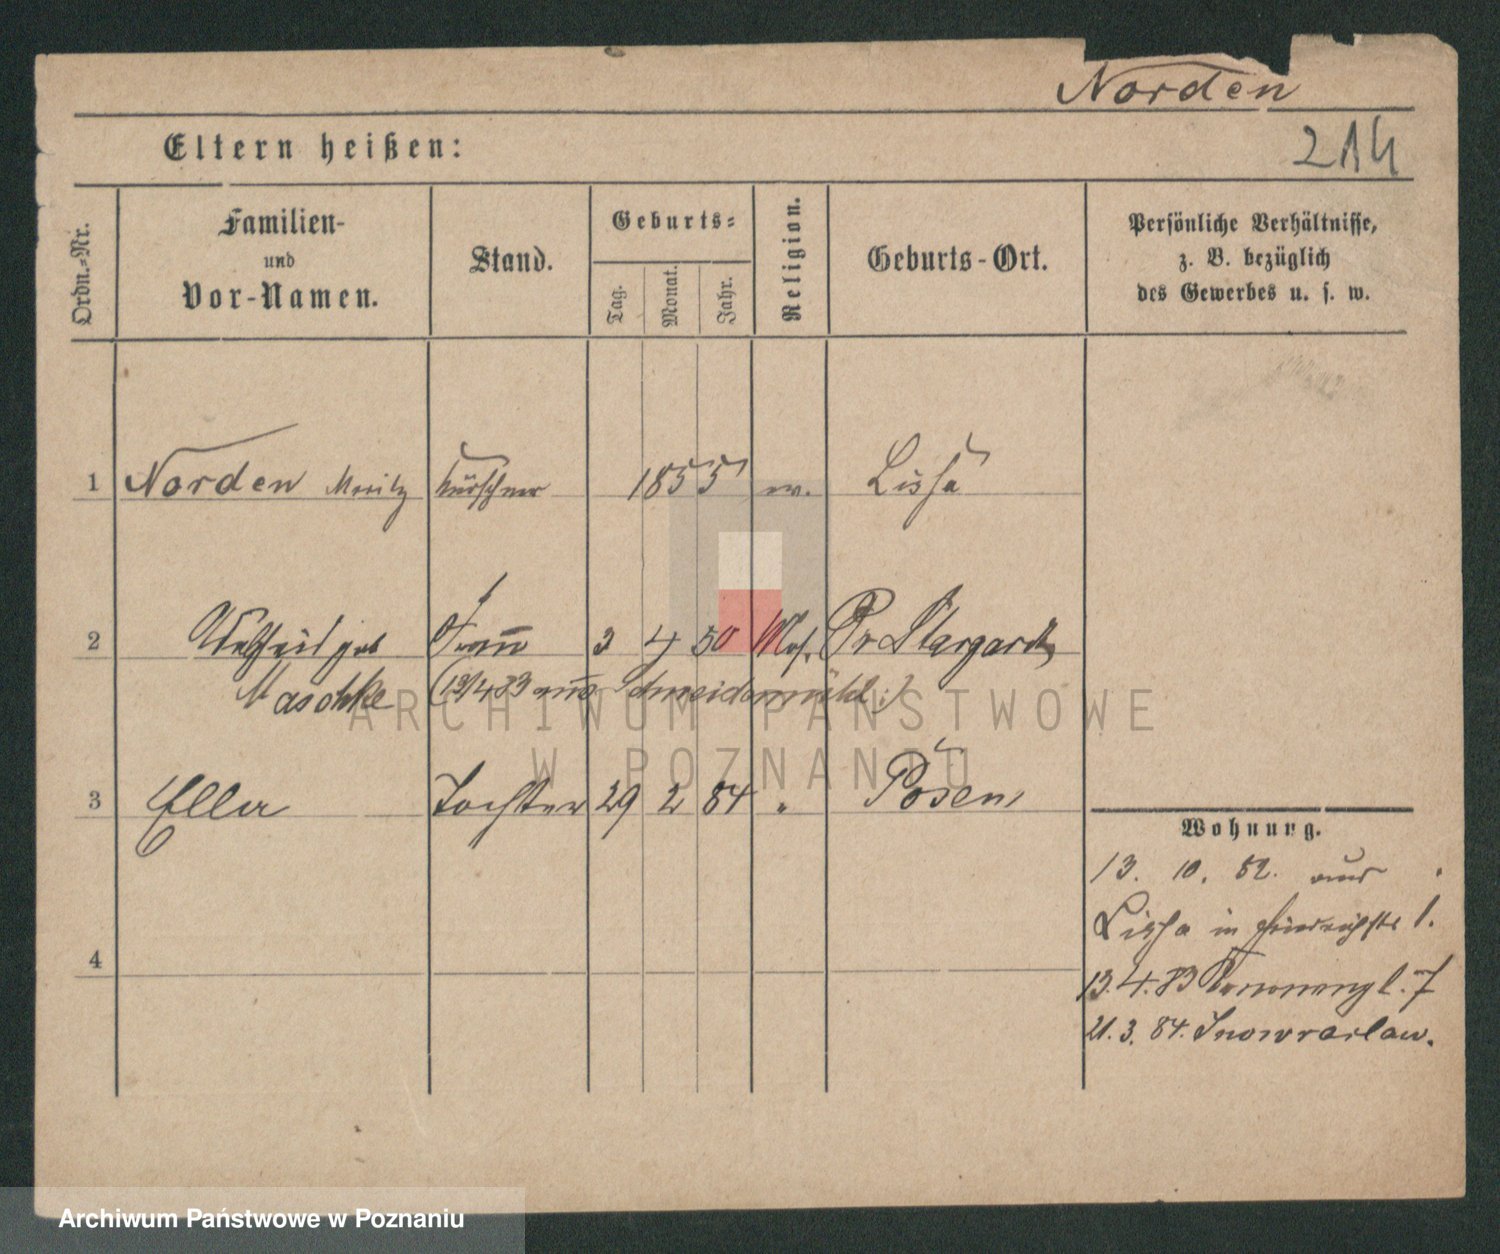 Norden
214
Eltern heißen:
Ordn.-Nr.
Familien-
und
Vor-Namen.
Stand.
Geburts-
Tag.
Monat.
Jahr.
Religion.
Geburts-Ort.
Persönliche Verhältnisse,
z. B. bezüglich
des Gewerbes u. s. w.
1 Norden Moritz Kürschner 1855 ev. Lissa
2 geb Frau 3 4 50 Mos. Pr Stargardt
Maschke (13/4 83 aus Schneidemühl)
3 Ella Tochter 29 2 84 " Posen
Wohnung.
13. 10. 82. aus
Lissa in 1.
13. 4. 83 7
21. 3. 84. Inowraclaw.
4
ARCHIWUM PAŃSTWOWE
W POZNANIU
Archiwum Państwowe w Poznaniu